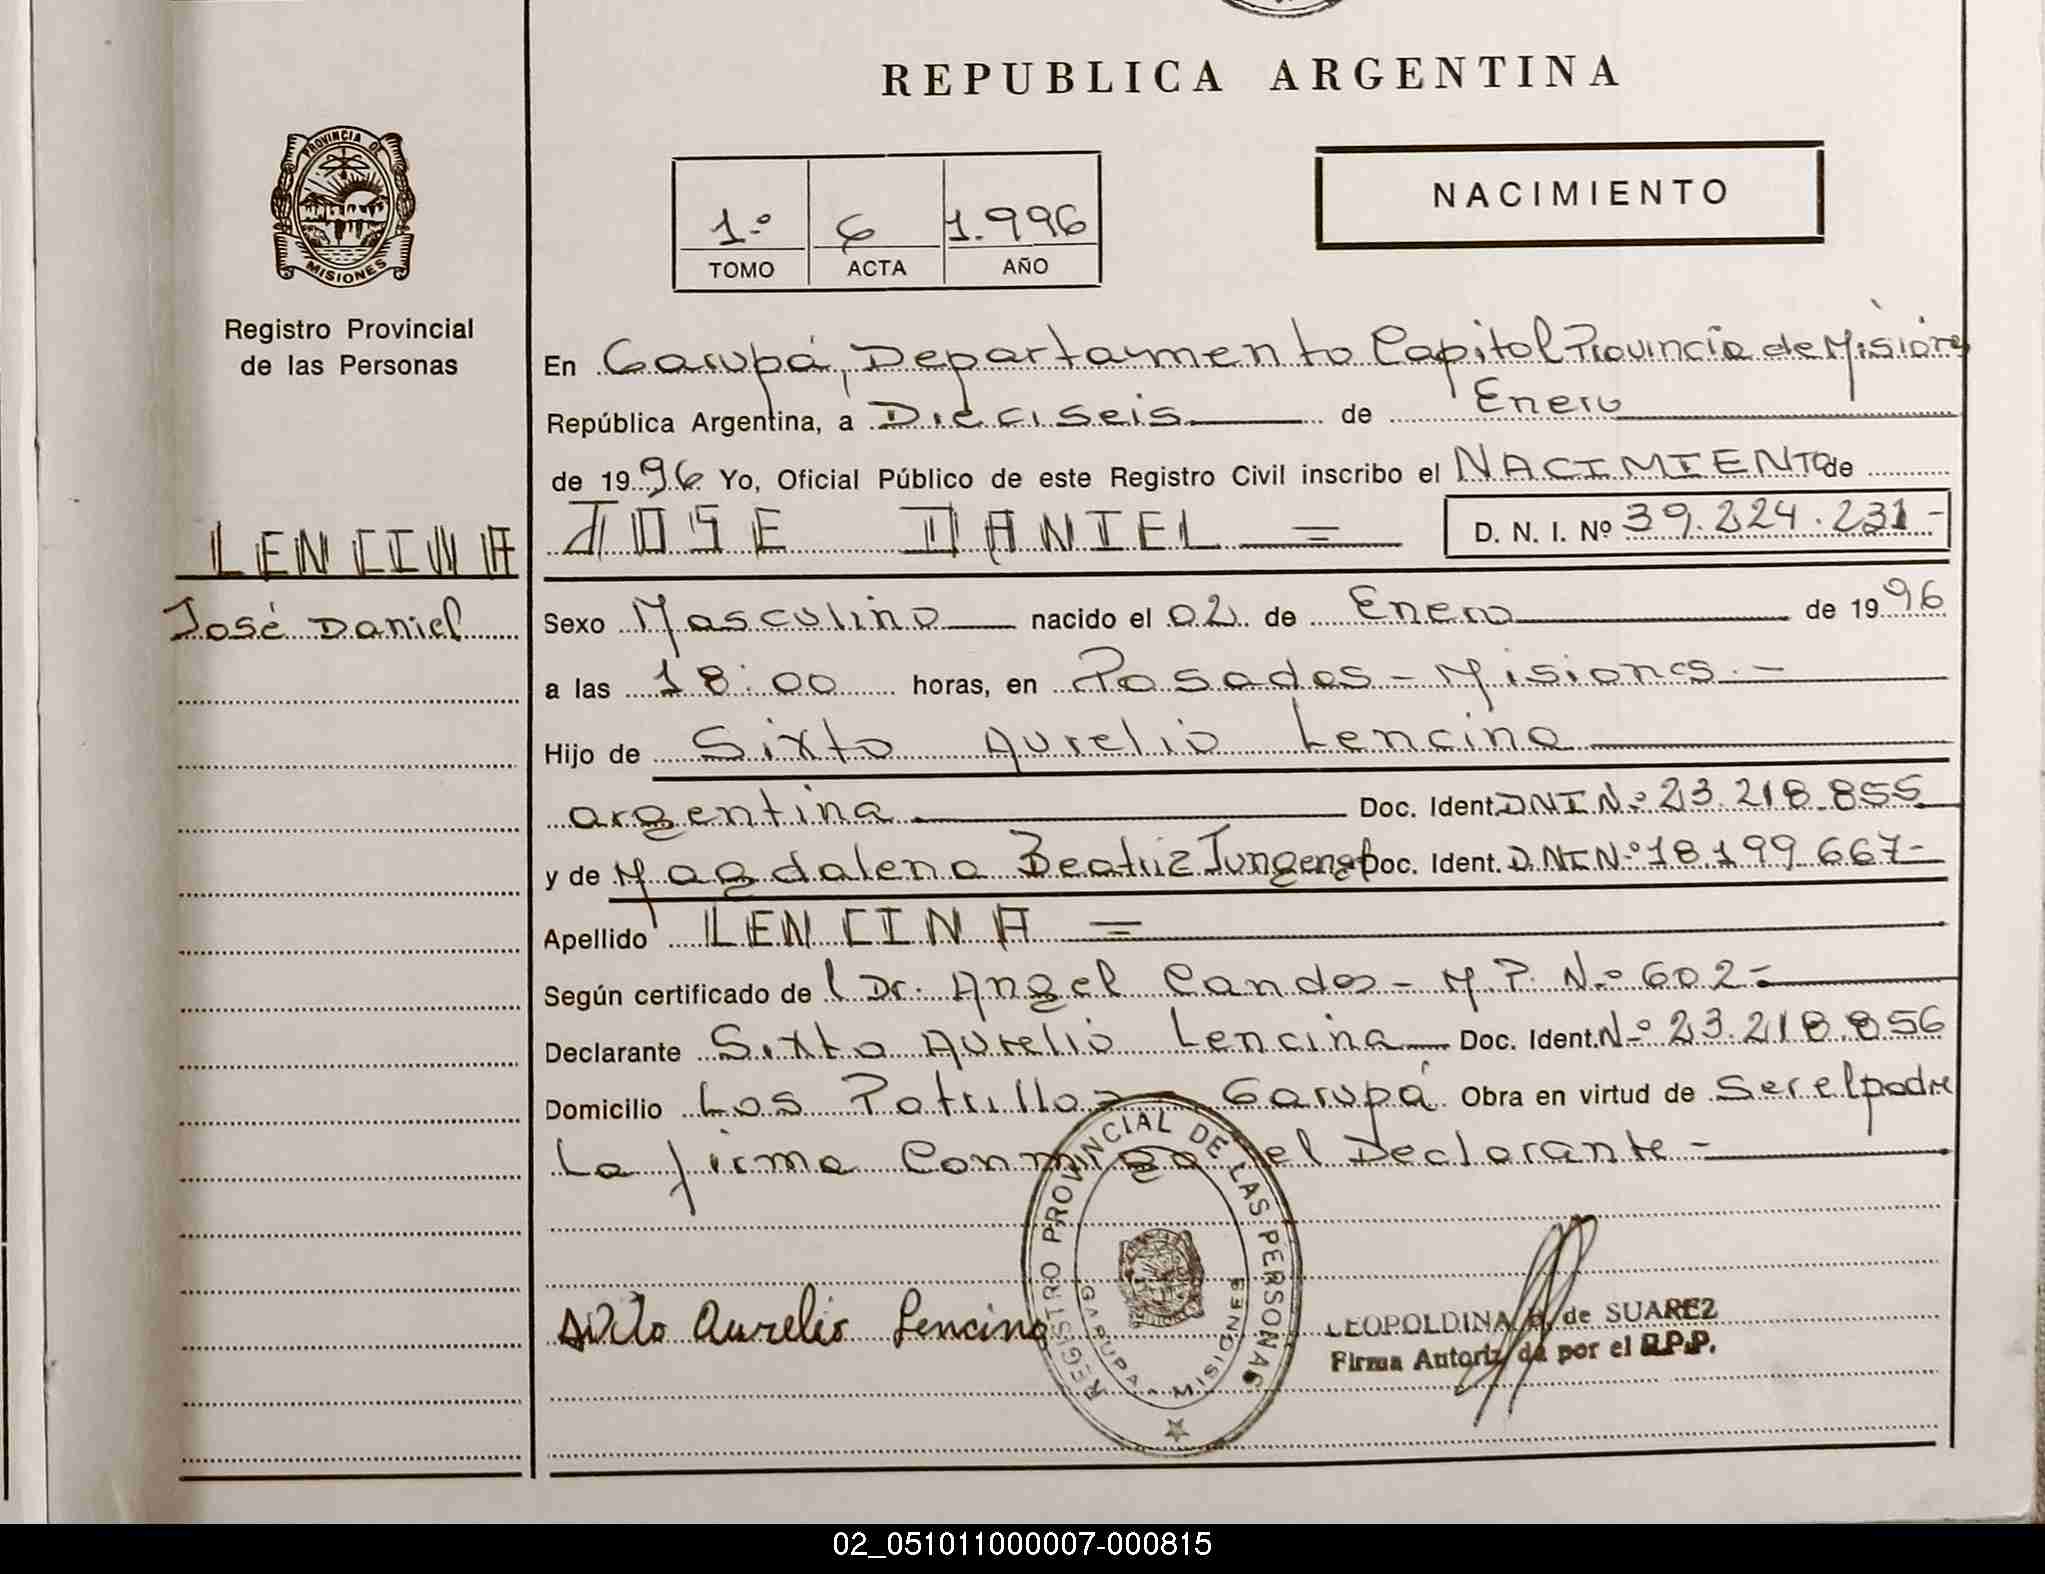 REPUBLICA ARGENTINA
PROVINCIA DE
MISIONES
NACIMIENTO
1.º 6 1.996
TOMO ACTA AÑO
Registro Provincial
de las Personas
En Garupá, Departamento Capital Provincia de Misiones
República Argentina, a Dieciseis de Enero
de 1996 Yo, Oficial Público de este Registro Civil inscribo el NACIMIENTO de
LENCINA JOSE DANIEL = D. N. I. Nº 39.224.231-
José Daniel
Sexo Masculino nacido el 02 de Enero de 1996
a las 18:00 horas, en Posadas - Misiones.-
Hijo de Sixto Aurelio Lencina
argentina Doc. Ident. DNI N.º 23.218.856
y de Magdalena Beatriz Doc. Ident. DNI N.º 18.199.667-
Apellido LENCINA =
Según certificado de Dr. Angel - M.P. N.º 602-
Declarante Sixto Aurelio Lencina Doc. Ident. N.º 23.218.856
Domicilio Los Potrillos - Garupá Obra en virtud de Ser el padre
La firma Conmigo el Declarante-
REGISTRO PROVINCIAL DE LAS PERSONAS
GARUPA - MISIONES
Sixto Aurelio Lencina
LEOPOLDINA de SUAREZ
Firma Autorizada por el R.P.P.
02_051011000007-000815